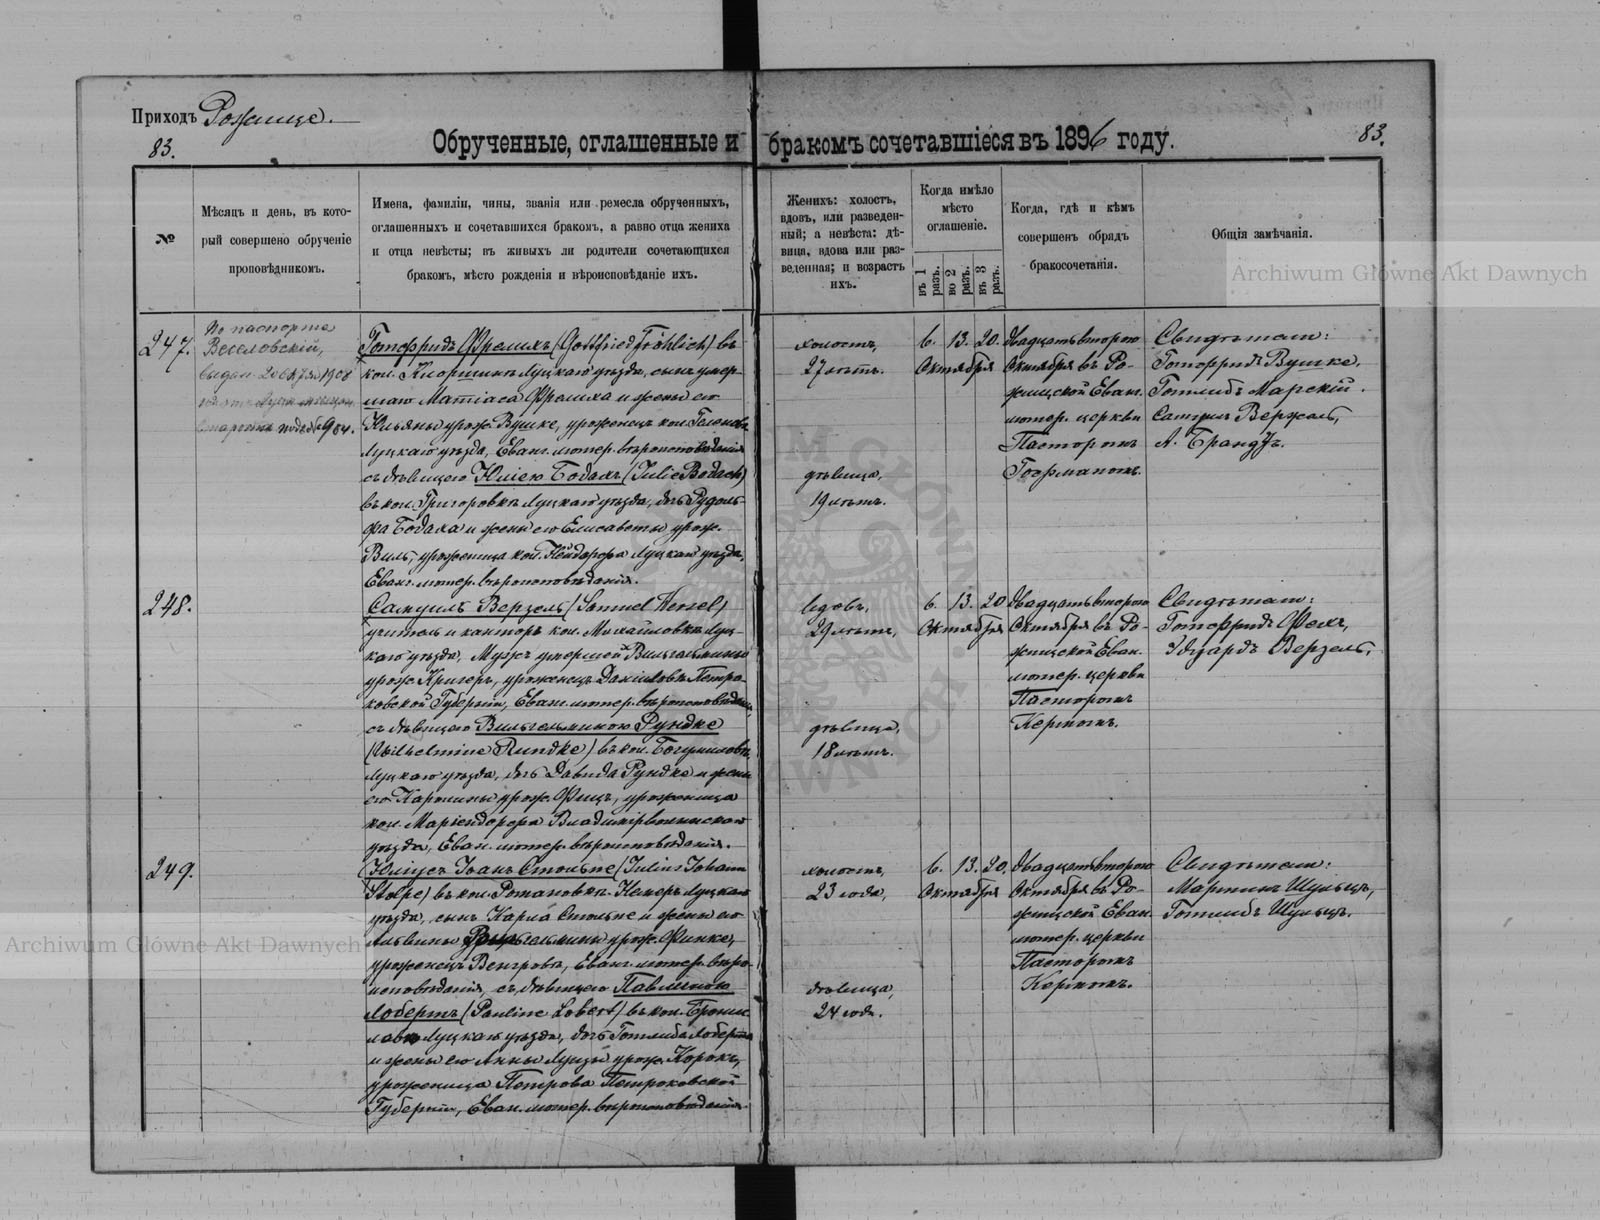 Приходъ Рожище.
83.
83.
Обрученные, оглашенные и бракомъ сочетавшіеся въ 1896 году.
№
Мѣсяцъ и день, въ кото-
рый совершено обрученіе
проповѣдникомъ.
Имена, фамиліи, чины, званія или ремесла обрученныхъ,
оглашенныхъ и сочетавшихся бракомъ, а равно отца жениха
и отца невѣсты; въ живыхъ ли родители сочетающихся
бракомъ, мѣсто рожденія и вѣроисповѣданіе ихъ.
Женихъ: холостъ,
вдовъ, или разведен-
ный; а невѣста: дѣ-
вица, вдова или раз-
веденная; и возрастъ
ихъ.
Когда имѣло
мѣсто
оглашеніе.
въ 1 разъ.
во 2 разъ.
въ 3 разъ.
Когда, гдѣ и кѣмъ
совершенъ обрядъ
бракосочетанія.
Общія замѣчанія.
247.
По паспорта
Веселовскій,
Готтфридъ Фрелихъ (Gottfried Fröhlich) въ
кол. Луцкаго уѣзда, сынъ умер-
шаго Матіаса Фрелиха и жены его
Юльяны урож. Вушке, уроженецъ кол.
Луцкаго уѣзда, Еванг. лютер. вѣроисповѣданія
съ дѣвицею Юліею Бодахъ (Julie Bodach)
въ кол. Григоровкѣ Луцкаго уѣзда, дочь Рудоль-
фа Бодаха и жены его Елисаветы урож.
Вилъ, уроженица кол. Нейдорфа Луцкаго уѣзда,
Еванг. лютер. вѣроисповѣданія.
холостъ,
27 лѣтъ.
дѣвица,
19 лѣтъ.
6. 13. 20.
Октября
Двадцать второго
Октября въ Ро-
жищской Еванг.
лютер. церкви
Пасторомъ
Гофманомъ.
Свидѣтели:
Готтфридъ Вушке,
Готлибъ Марскій.
Самуилъ Верзель,
А. Брандтъ.
248.
Самуилъ Верзель (Samuel Wersel)
учитель и канторъ кол. Михайловки Луц-
каго уѣзда, Мужъ умершей Вильгельмины
урож. Кригеръ, уроженецъ Данилова Петро-
ковской Губерніи, Еван. лютер. вѣроисповѣданія,
съ дѣвицею Вильгельминою Рундке
(Wilhelmine Rundke) въ кол. Богумиловкѣ
Луцкаго уѣзда, дочь Давида Рундке и жены
его Каролины урож. Фицъ, уроженица
кол. Маріендорфа Владимірволынскаго
уѣзда, Еван. лютер. вѣроисповѣданія.
вдовъ,
29 лѣтъ,
дѣвица,
18 лѣтъ.
6. 13. 20
Октября
Двадцать второго
Октября въ Ро-
жищской Еван.
лютер. церкви
Пасторомъ
Кермомъ.
Свидѣтели:
Готтфридъ
Эдуардъ Верзель,
249.
Юліусъ Іоанъ Стольпе (Julius Johann
Stolpe) въ кол. Романовкѣ Луцкаго
уѣзда, сынъ Карла Стольпе и жены его
Альвины Вильгельмины урож. Финке,
уроженецъ Венгрова, Еванг. лютер. вѣро-
исповѣданія, съ дѣвицею Павлиною
Лобертъ (Pauline Lobert) въ кол. Бронис-
лавкѣ Луцкаго уѣзда, дочь Готлиба Лоберта
и жены его Анны Луизы урож. Корокъ,
уроженица Петрова Петроковской
Губерніи, Еван. лютер. вѣроисповѣданія.
холостъ,
23 года,
дѣвица,
24 года.
6. 13. 20.
Октября
Двадцать второго
Октября въ Ро-
жищской Еван.
лютер. церкви
Пасторомъ
Кермомъ.
Свидѣтели:
Мартинъ Шульцъ,
Готлибъ Шульцъ.
Archiwum Główne Akt Dawnych
Archiwum Główne Akt Dawnych